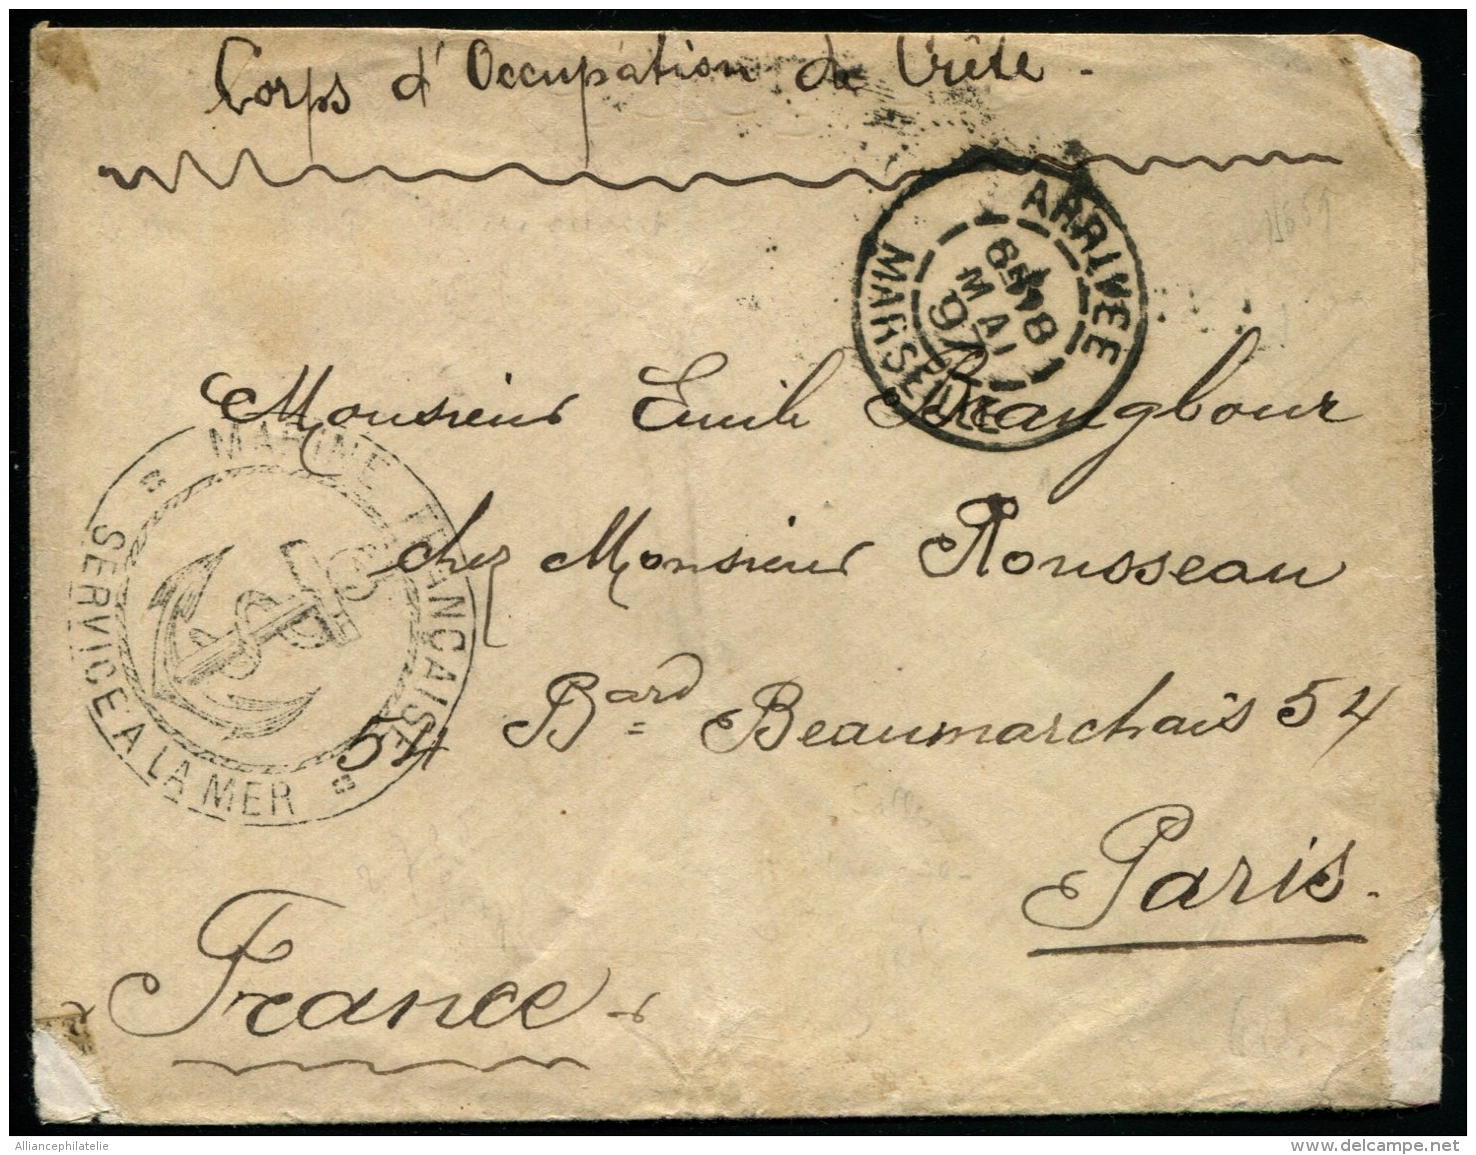 Corps d'Occupation de Crète -
ARRIVEE
MAI
97
MARSEILLE
Monsieur Emile Beaugbour
chez Monsieur Rousseau
54 Bard Beaumarchais 54
Paris.
France.
MARINE FRANÇAISE
SERVICE A LA MER
Alliancephilatelie
delcampe.net